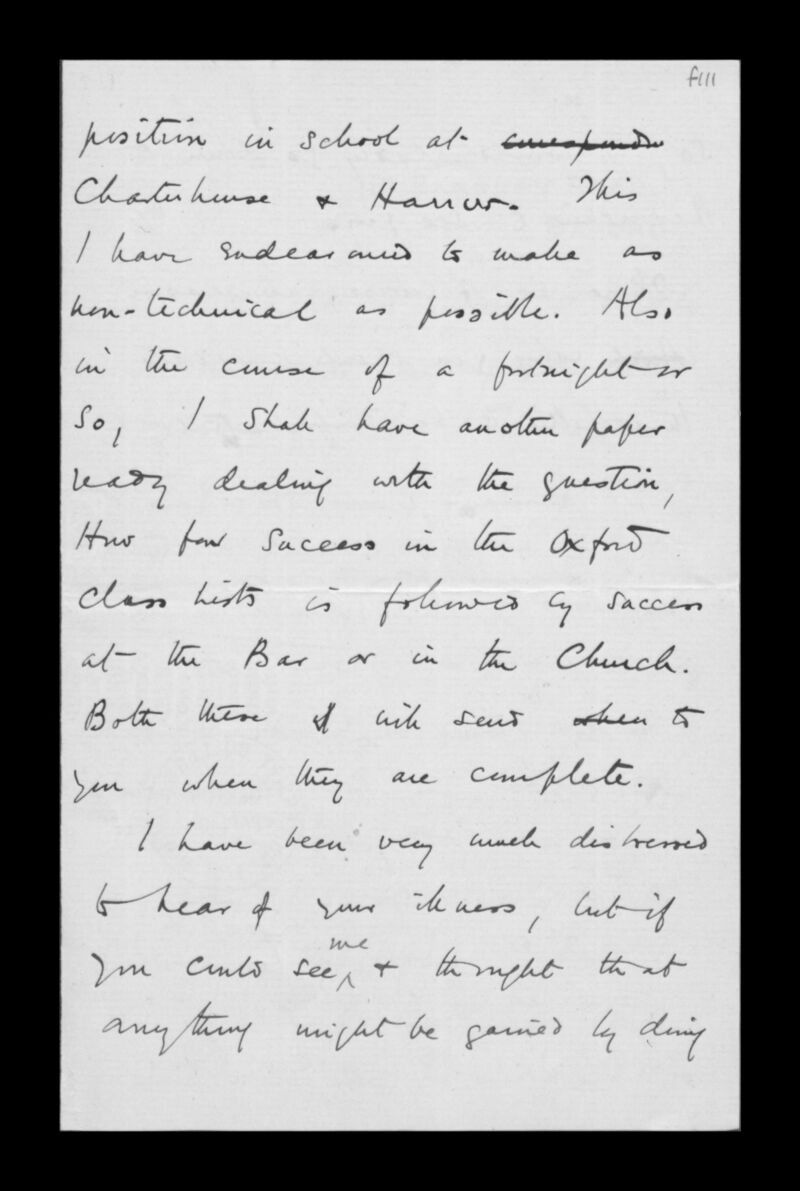 f111
position in school at corresponds
Charterhouse & Harrow. This
I have endeavoured to make as
non-technical as possible. Also
in the course of a fortnight or
so, I shall have another paper
ready dealing with the question,
How far success in the Oxford
Class Lists is followed by success
at the Bar or in the Church.
Both these I will send when to
you when they are complete.
I have been very much distressed
to hear of your illness, but if
you could see me & thought that
anything might be gained by doing